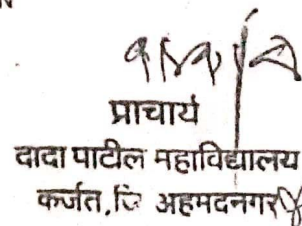 प्राचार्य
दादा पाटील महाविद्यालय
कर्जत, जि अहमदनगर